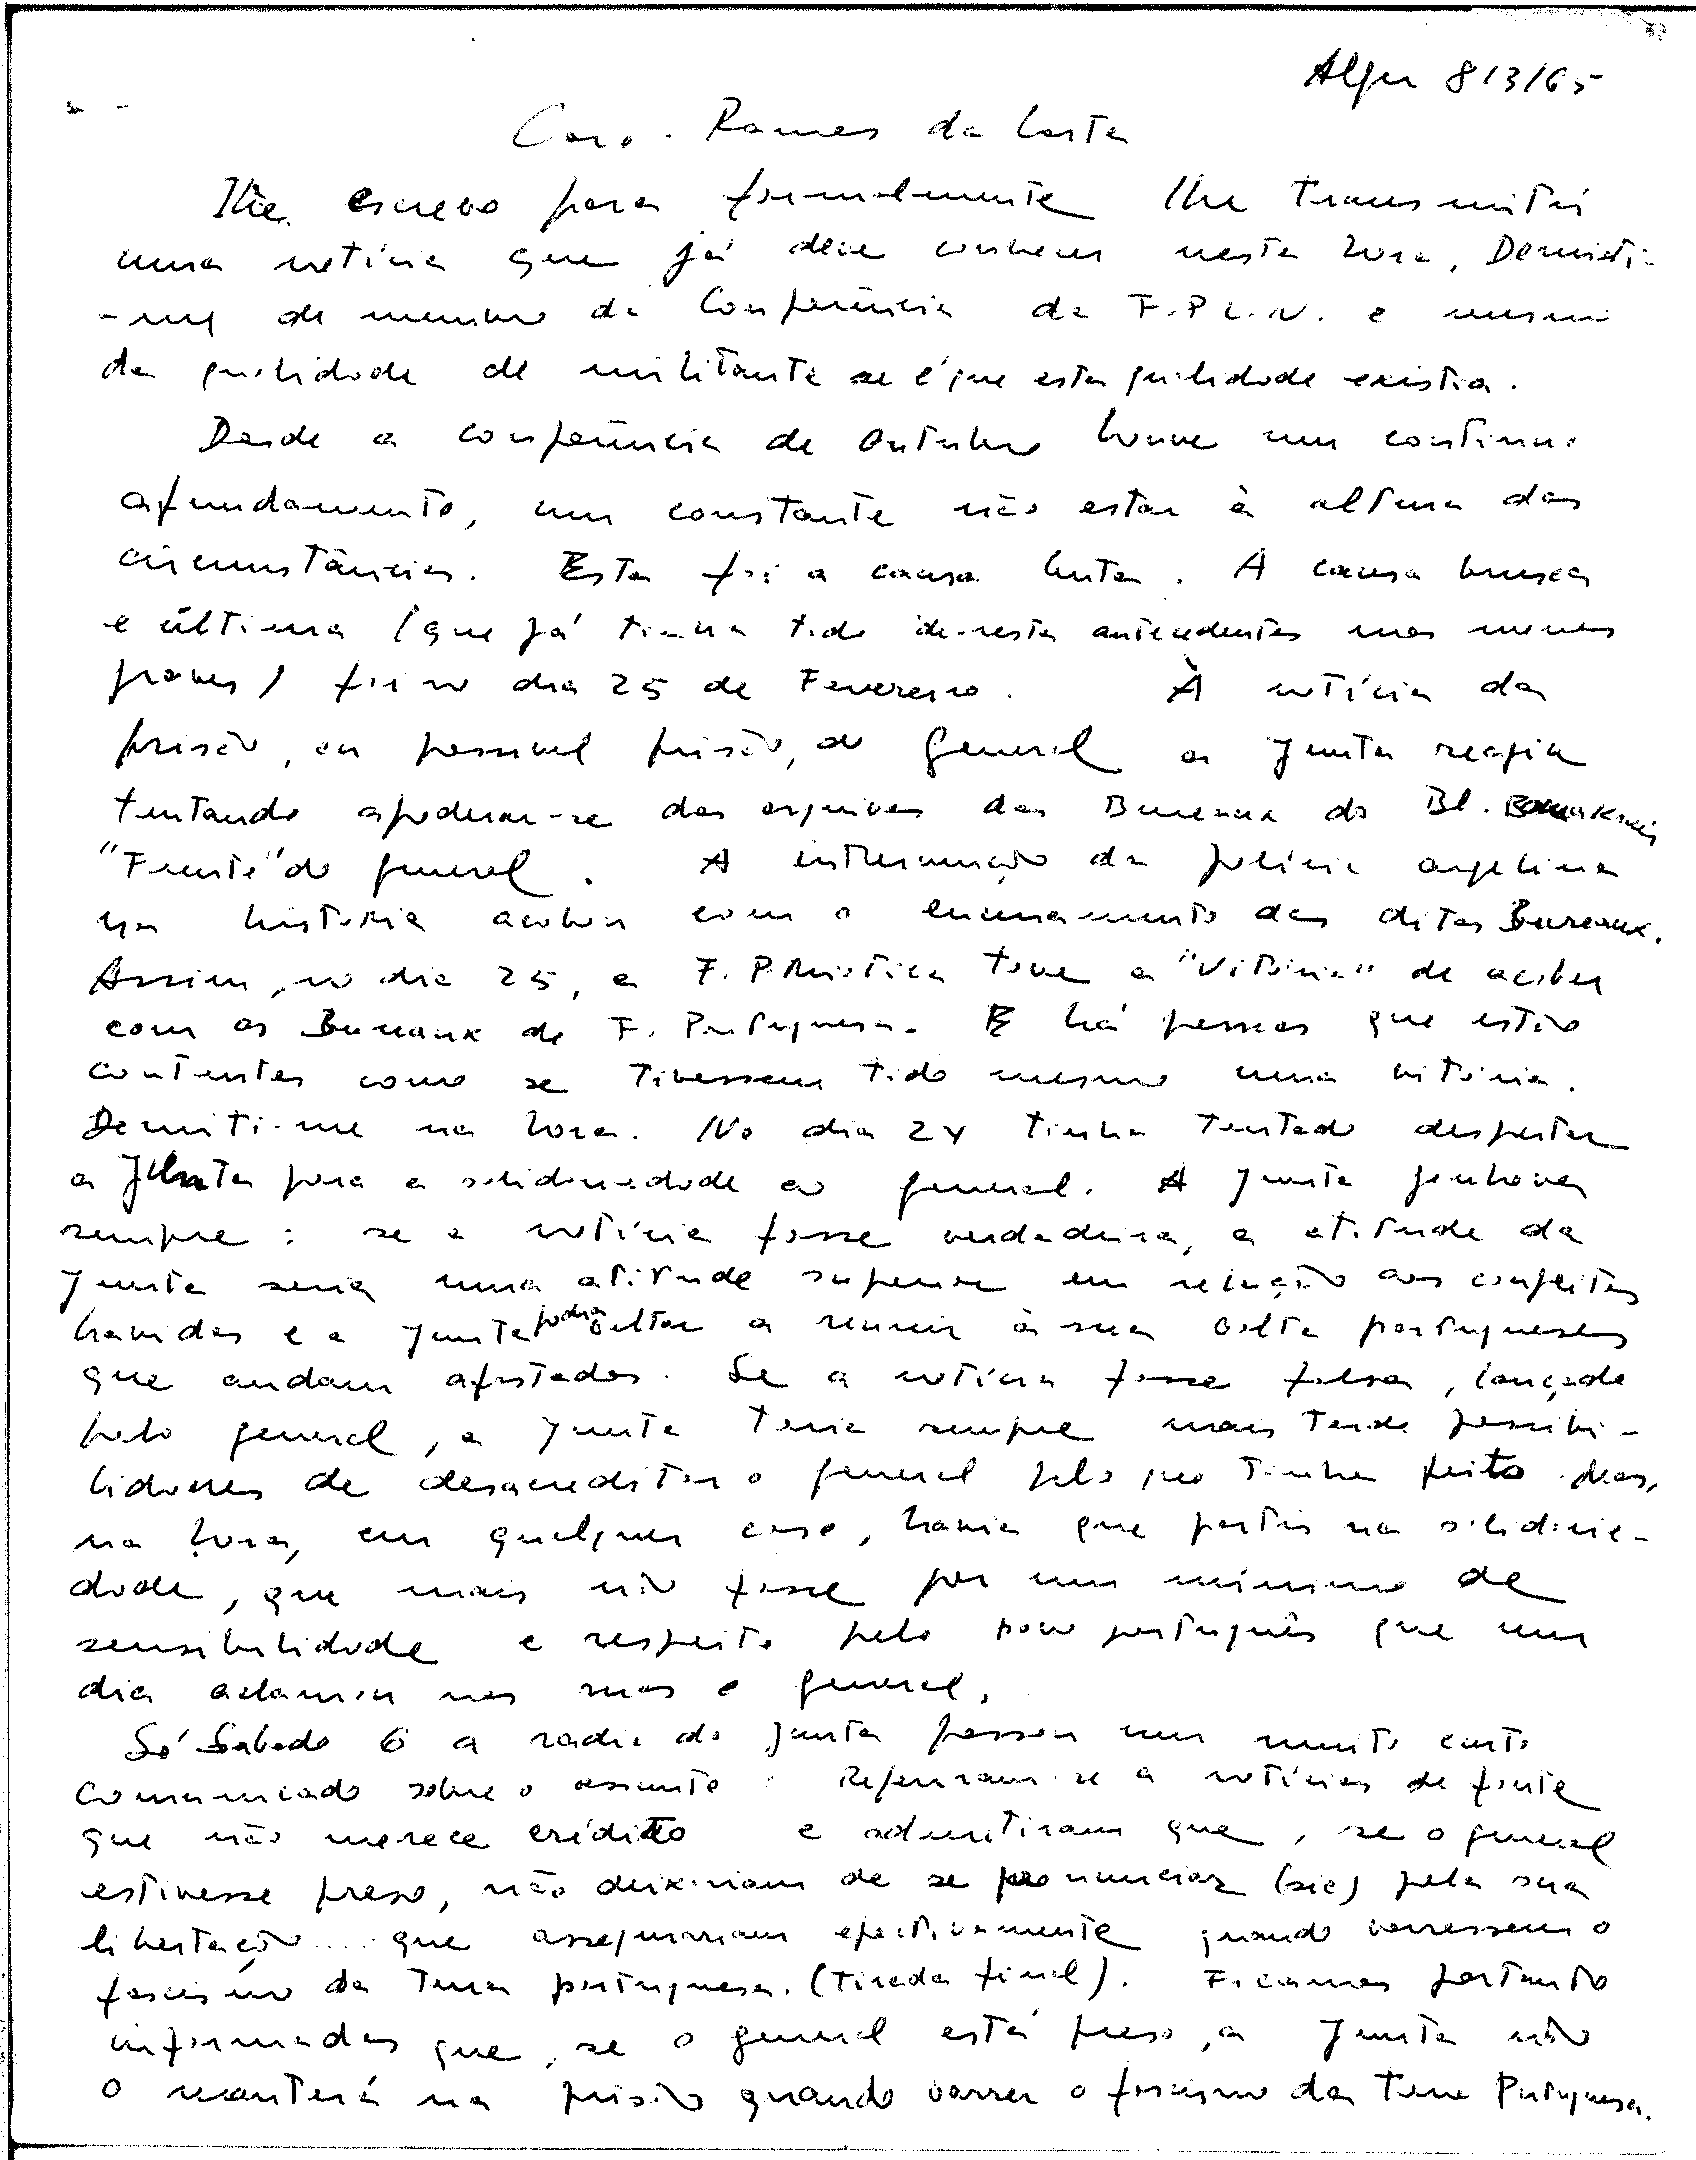 Alger 8/3/65
Caro. Ramos da Costa
lhe escrevo para formalmente lhe transmitir
uma notícia que já deve conhecer nesta hora. Demiti-
-me de membro da Conferência da F.P.L.N. e mesmo
da qualidade de militante se é que esta qualidade existia.
Desde a conferência de Outubro houve um contínuo
afundamento, um constante não estar à altura das
circunstâncias. Esta foi a causa lenta. A causa brusca
e última (que já tinha tido de-resto antecedentes mas menos
graves) foi no dia 25 de Fevereiro. À notícia da
prisão, ou possível prisão, do general a Junta reagiu
tentando apoderar-se dos arquivos dos Bureaux do Bl.
"Frente" do general. A intervenção da polícia argelina
na historia acabou com o encerramento dos ditos Bureaux.
Assim, no dia 25, a F. Patriótica teve a "vitória" de acabar
com os Bureaux de F. Portuguesa. E há pessoas que estão
contentes como se tivessem tido mesmo uma vitória.
Demiti-me na hora. No dia 24 tinha tentado despertar
a Junta para a solidariedade ao general. A Junta ganhava
sempre: se a notícia fosse verdadeira, a atitude da
Junta seria uma atitude superior em relação aos conflitos
havidos e a Junta podia voltar a reunir à sua volta portugueses
que andam afastados. Se a notícia fosse falsa, lançada
pelo general, a Junta teria sempre mais tarde possibi-
lidades de desacreditar o general pelo que tinha feito. Mas,
na hora, em qualquer caso, havia que partir na solidarie-
dade, que mais não fosse por um mínimo de
sensibilidade e respeito pelo povo português que um
dia aclamou nas ruas o general.
Só Sabado 6 a radio da Junta passou um muito curto
comunicado sobre o assunto. Referiram-se a notícias de fonte
que não merece crédito e admitiram que, se o general
estivesse preso, não deixariam de se pronunciar (sic) pela sua
libertação... que assegurariam efectivamente quando varressem o
fascismo da terra portuguesa. (tirada final). Ficamos portanto
informados que, se o general está preso, a Junta não
o manterá na prisão quando varrer o fascismo da terra Portuguesa.